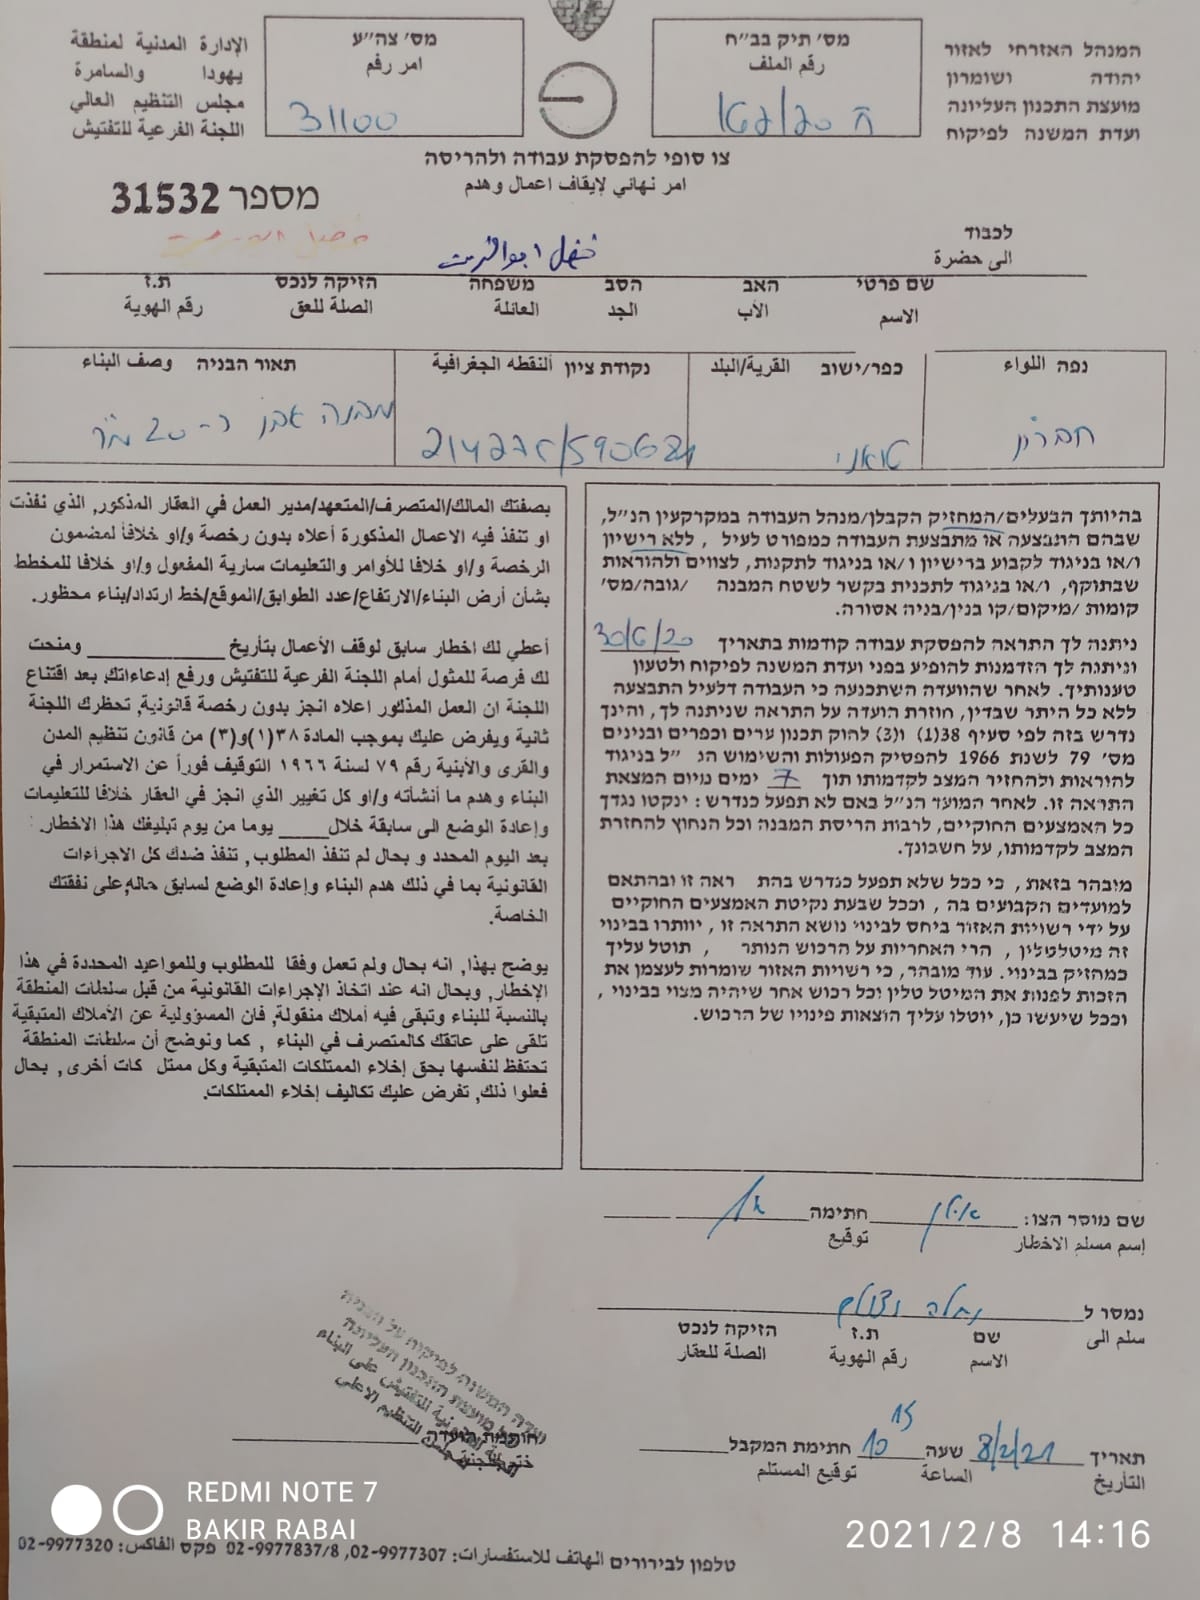 המנהל האזרחי לאזור
יהודה ושומרון
מועצת התכנון העליונה
ועדת המשנה לפיקוח
מס׳ תיק בב״ח
رقم الملف
מס׳ צה״ע
امر رقم
31100
الإدارة المدنية لمنطقة
يهودا والسامرة
مجلس التنظيم العالي
اللجنة الفرعية للتفتيش
צו סופי להפסקת עבודה ולהריסה
امر نهائي لإيقاف اعمال وهدم
מספר 31532
לכבוד
الى حضرة
שם פרטי האב הסב משפחה הזיקה לנכס ת.ז
الاسم الأب الجد العائلة الصلة للعق رقم الهوية
נפה اللواء כפר/ישוב القرية/البلد נקודת ציון النقطه الجغرافية תאור הבניה وصف البناء
חברון טואני 20 מ״ר
בהיותך הבעלים/המחזיק הקבלן/מנהל העבודה במקרקעין הנ״ל,
שבהם התבצעה או מתבצעת העבודה כמפורט לעיל, ללא רישיון
ו/או בניגוד לקבוע ברישיון ו/או בניגוד לתקנות, לצווים ולהוראות
שבתוקף, ו/או בניגוד לתכנית בקשר לשטח המבנה /גובה/מס׳
קומות /מיקום/קו בנין/בניה אסורה.
ניתנה לך התראה להפסקת עבודה קודמות בתאריך 30/6/20
וניתנה לך הזדמנות להופיע בפני ועדת המשנה לפיקוח ולטעון
טענותיך. לאחר שהוועדה השתכנעה כי העבודה דלעיל התבצעה
ללא כל היתר שבדין, חוזרת הועדה על התראה שניתנה לך, והינך
נדרש בזה לפי סעיף 38(1) ו(3) לחוק תכנון ערים וכפרים ובניינים
מס׳ 79 לשנת 1966 להפסיק הפעולות והשימוש הנ ״ל בניגוד
להוראות ולהחזיר המצב לקדמותו תוך 7 ימים מיום המצאת
התראה זו. לאחר המועד הנ״ל באם לא תפעל כנדרש: ינקטו נגדך
כל האמצעים החוקיים, לרבות הריסת המבנה וכל הנחוץ להחזרת
המצב לקדמותו, על חשבונך.
מובהר בזאת, כי ככל שלא תפעל כנדרש בהת ראה זו ובהתאם
למועדים הקבועים בה, וככל שבעת נקיטת האמצעים החוקיים
על ידי רשויות האזור ביחס לבינוי נושא התראה זו, יוותרו בבינוי
זה מיטלטלין, הרי האחריות על הרכוש הנותר, תוטל עליך
כמחזיק בבינוי. עוד מובהר, כי רשויות האזור שומרות לעצמן את
הזכות לפנות את המיטל טלין וכל רכוש אחר שיהיה מצוי בבינוי,
וככל שיעשו כן, יוטלו עליך הוצאות פינויו של הרכוש.
بصفتك المالك/المتصرف/المتعهد/مدير العمل في العقار المذكور, الذي نفذت
او تنفذ فيه الاعمال المذكورة أعلاه بدون رخصة و/او خلافاً لمضمون
الرخصة و/او خلافا للأوامر والتعليمات سارية المفعول و/او خلافا للمخطط
بشأن أرض البناء/الارتفاع/عدد الطوابق/الموقع/خط ارتداد/بناء محظور.
أعطي لك اخطار سابق لوقف الأعمال بتأريخ ____________ ومنحت
لك فرصة للمثول أمام اللجنة الفرعية للتفتيش ورفع إدعاءاتك, بعد اقتناع
اللجنة ان العمل المذكور اعلاه انجز بدون رخصة قانونية, تحظرك اللجنة
ثانية ويفرض عليك بموجب المادة ٣٨(١)و(٣) من قانون تنظيم المدن
والقرى والأبنية رقم ٧٩ لسنة ١٩٦٦ التوقيف فوراً عن الاستمرار في
البناء وهدم ما أنشأته و/او كل تغيير الذي انجز في العقار خلافا للتعليمات
وإعادة الوضع الى سابقة خلال____ يوما من يوم تبليغك هذا الاخطار.
بعد اليوم المحدد و بحال لم تنفذ المطلوب, تنفذ ضدك كل الاجراءات
القانونية بما في ذلك هدم البناء وإعادة الوضع لسابق حاله,على نفقتك
الخاصة.
يوضح بهذا, انه بحال ولم تعمل وفقا للمطلوب وللمواعيد المحددة في هذا
الإخطار, وبحال انه عند اتخاذ الإجراءات القانونية من قبل سلطات المنطقة
بالنسبة للبناء وتبقى فيه أملاك منقولة, فان المسؤولية عن الأملاك المتبقية
تلقى على عاتقك كالمتصرف في البناء, كما ونوضح أن سلطات المنطقة
تحتفظ لنفسها بحق إخلاء الممتلكات المتبقية وكل ممتل كات أخرى, بحال
فعلوا ذلك, تفرض عليك تكاليف إخلاء الممتلكات.
שם מוסר הצו: חתימה
إسم مسلم الاخطار توقيع
נמסר ל
سلم الى
שם ת.ז הזיקה לנכס
الاسم رقم الهوية الصلة للعقار
תאריך 8/2/21 שעה 10 15 חתימת המקבל
التأريخ الساعة توقيع المستلم
חותמת הועדה
טלפון לבירורים الهاتف للاستفسارات: 02-9977307, 02-9977837/8 פקס الفاكس: 02-9977320
REDMI NOTE 7
BAKIR RABAI
2021/2/8 14:16